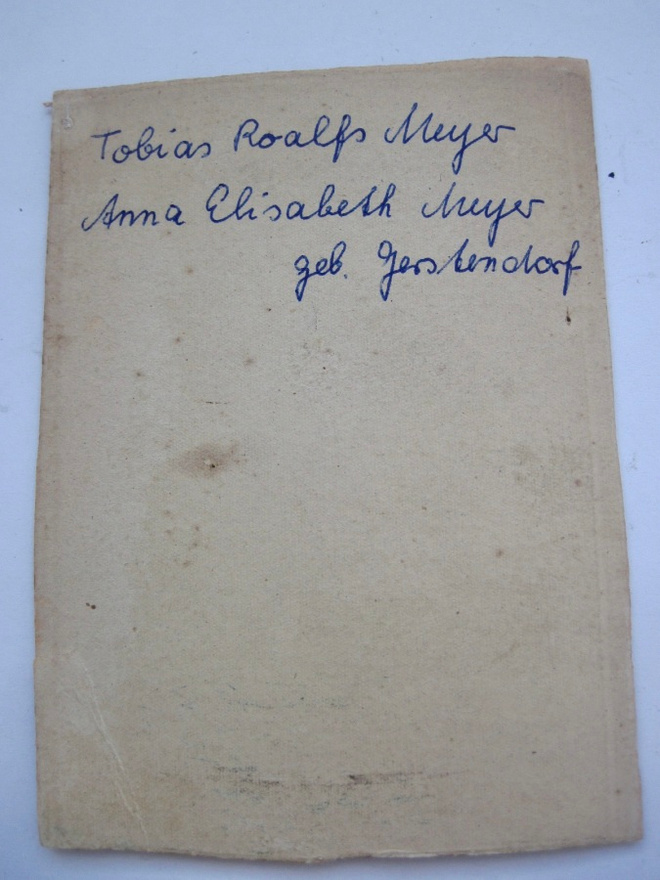 Tobias Roalfs Meyer
Anna Elisabeth Meyer
geb. Gerstendorf